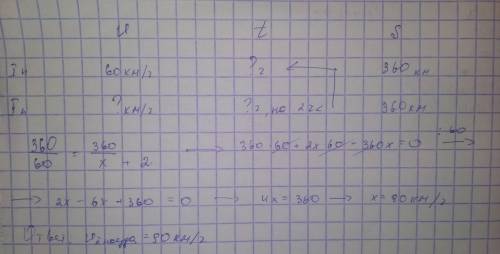 υ t S
I п 60 км/г ? г 360 км
II п ? км/г ? г, но 2 г < 360 км
360/60 = 360/x + 2 → 360 · 60 + 2x 60 - 360x = 0 : 60 →
→ 2x - 6x + 360 = 0 → 4x = 360 → x = 90 км/г
Ответ. υ 2 поезда = 90 км/г